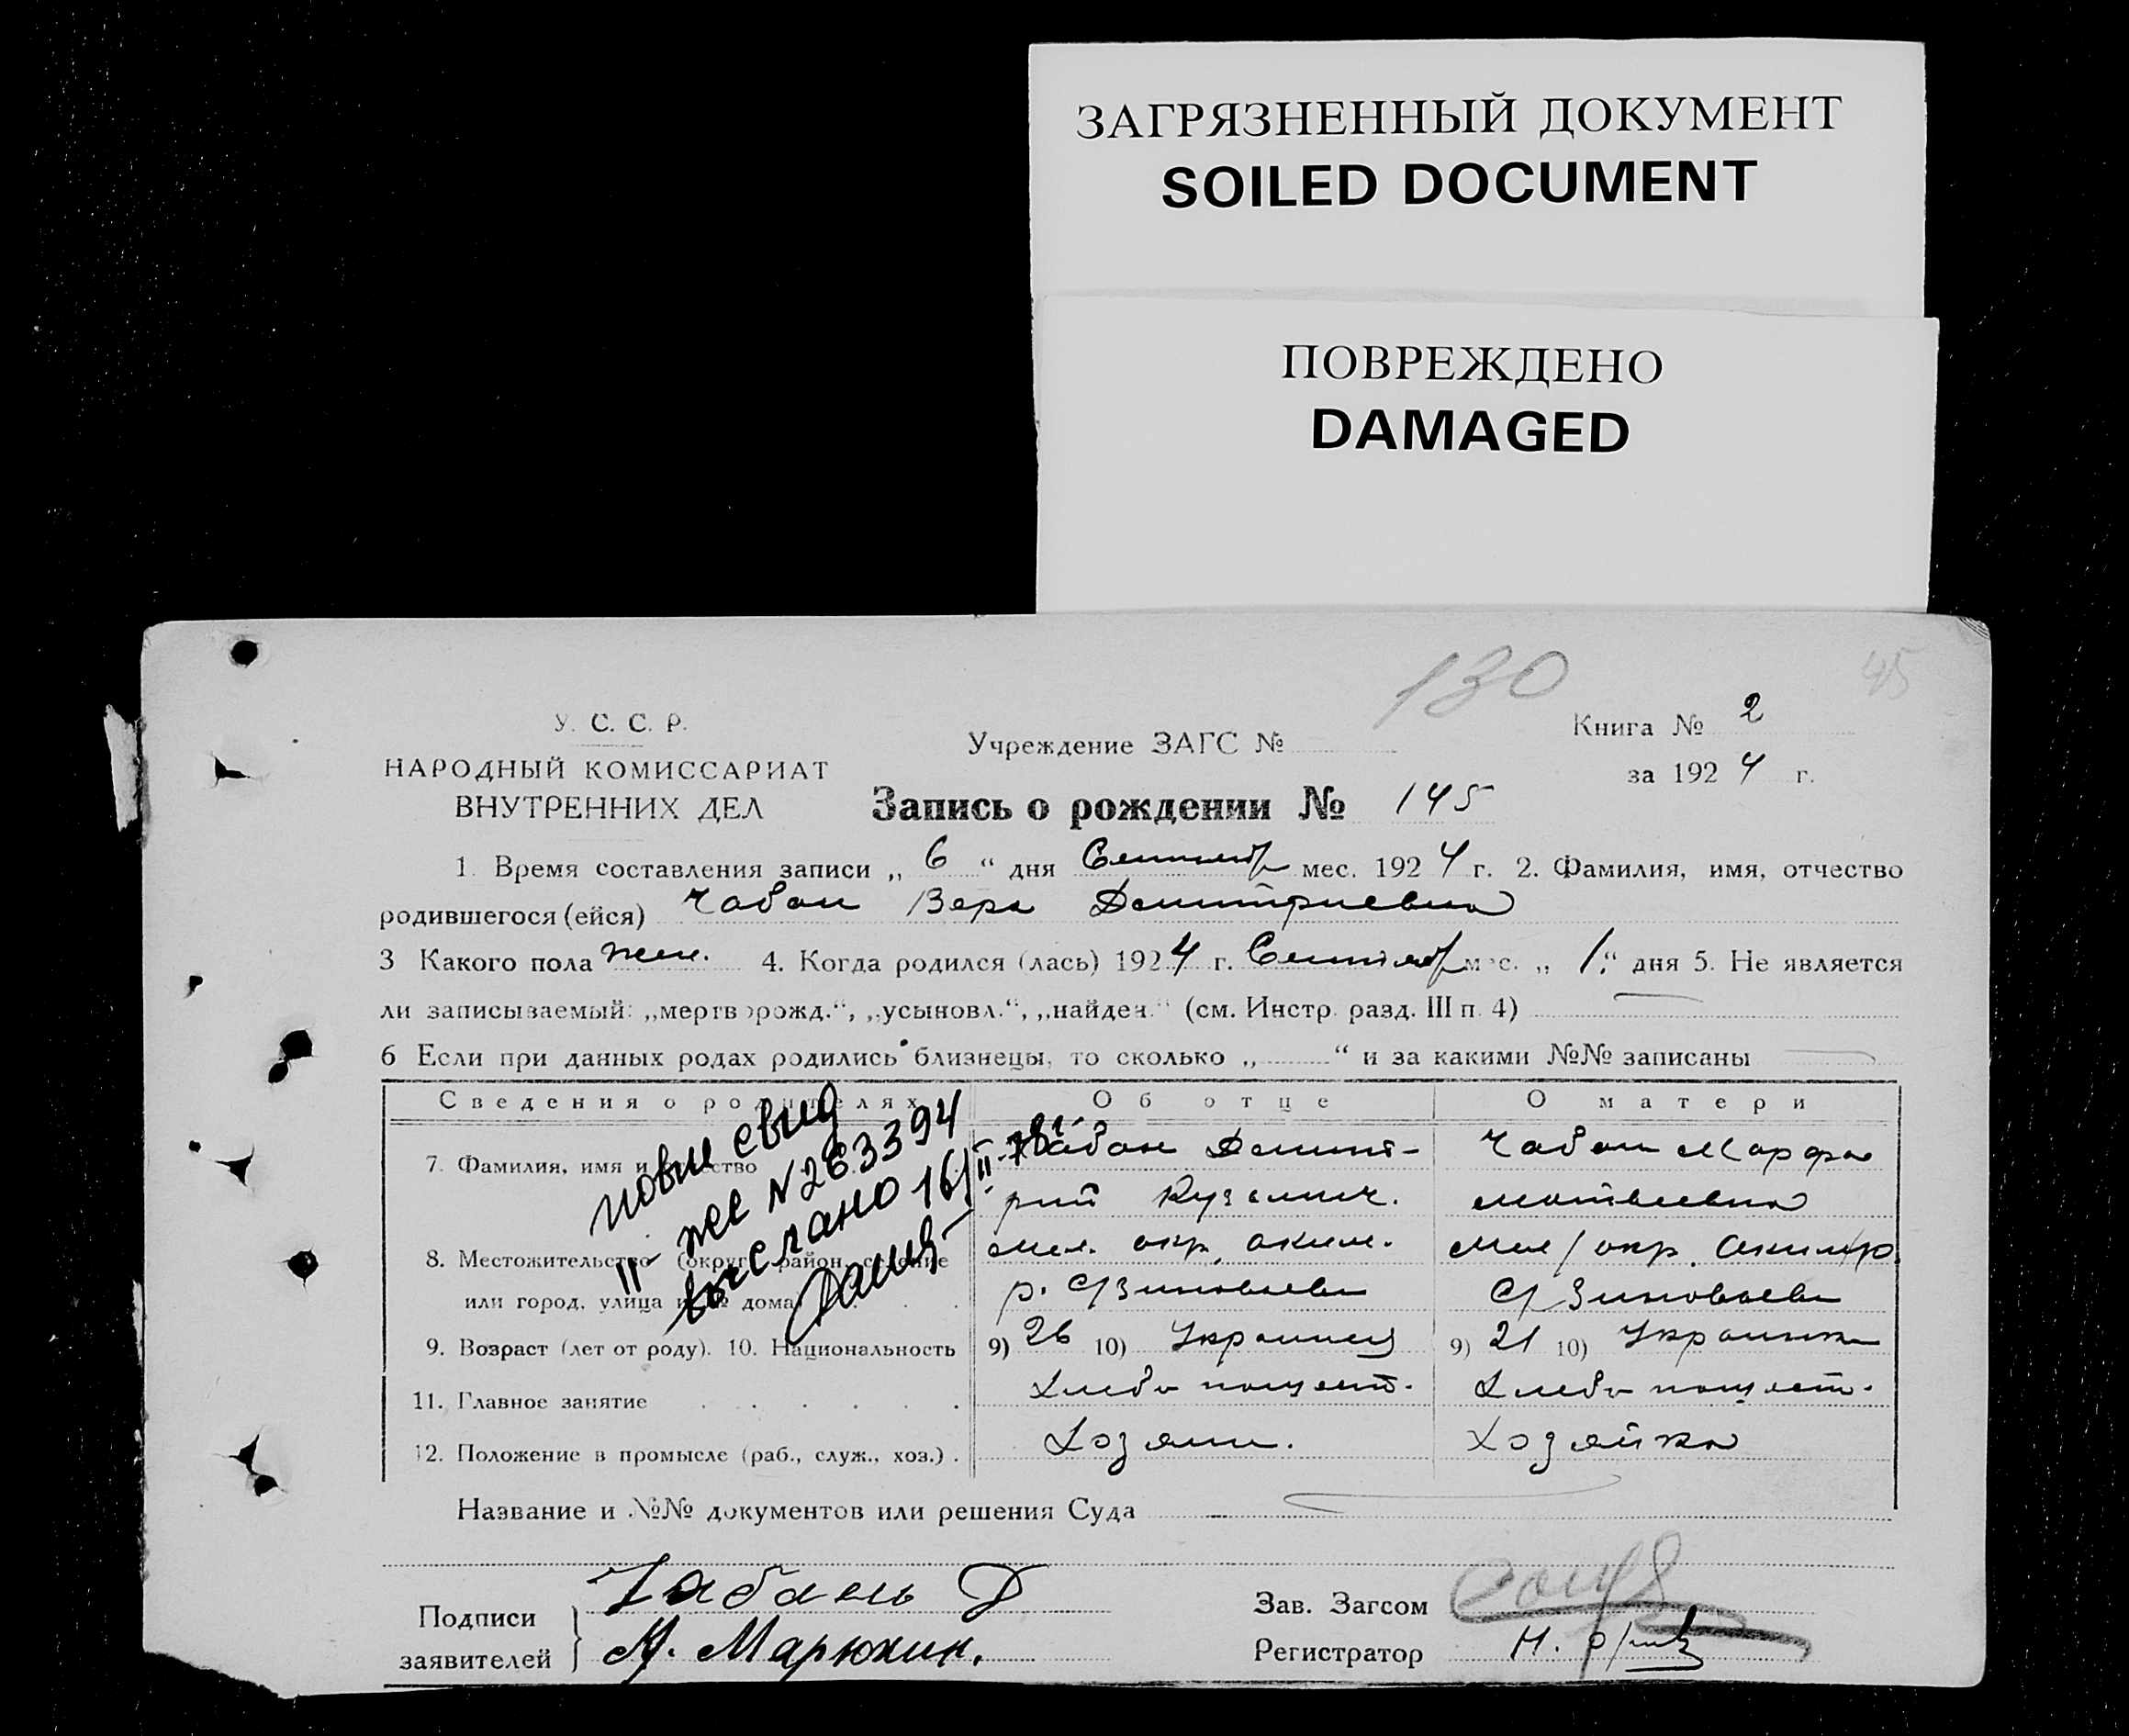 ЗАГРЯЗНЕННЫЙ ДОКУМЕНТ
SOILED DOCUMENT
ПОВРЕЖДЕНО
DAMAGED
130 45
У. С. С. Р.
НАРОДНЫЙ КОМИССАРИАТ
ВНУТРЕННИХ ДЕЛ
Учреждение ЗАГС №
Книга № 2
за 1924 г.
Запись о рождении № 145
1. Время составления записи „ 6 “ дня Сентябр мес. 1924 г. 2. Фамилия, имя, отчество
родившегося (ейся) Чабан Вера Дмитриевна
3 Какого пола жен. 4. Когда родился (лась) 1924 г. Сентябр мес. „ 1 “ дня 5. Не является
ли записываемый: „мертворожд.“, „усыновл.“, „найден.“ (см. Инстр. разд. III п. 4)
6 Если при данных родах родились близнецы, то сколько „ “ и за какими №№ записаны
Сведения о родителях Об отце О матери
7. Фамилия, имя и отчество Чабан Дмит- Чабан Марфа
рий Кузьмич. Матвеевна
8. Местожительство (округ, район, селение Мел. окр. Аким. Мел/окр. Аким/р.
или город, улица и № дома) р. С/Зиновьева С/Зиновьева
9. Возраст (лет от роду). 10. Национальность 9) 26 10) Украинец 9) 21 10) Украинка
11. Главное занятие Хлебопашест. Хлебопашест.
12. Положение в промысле (раб., служ., хоз.) . Хозяин. Хозяйка
новые свид
II-жс №263394
выслано 16/II-78г.
Название и №№ документов или решения Суда
Подписи
заявителей
Чабань Д
М. Марюхин.
Зав. Загсом
Регистратор Н.